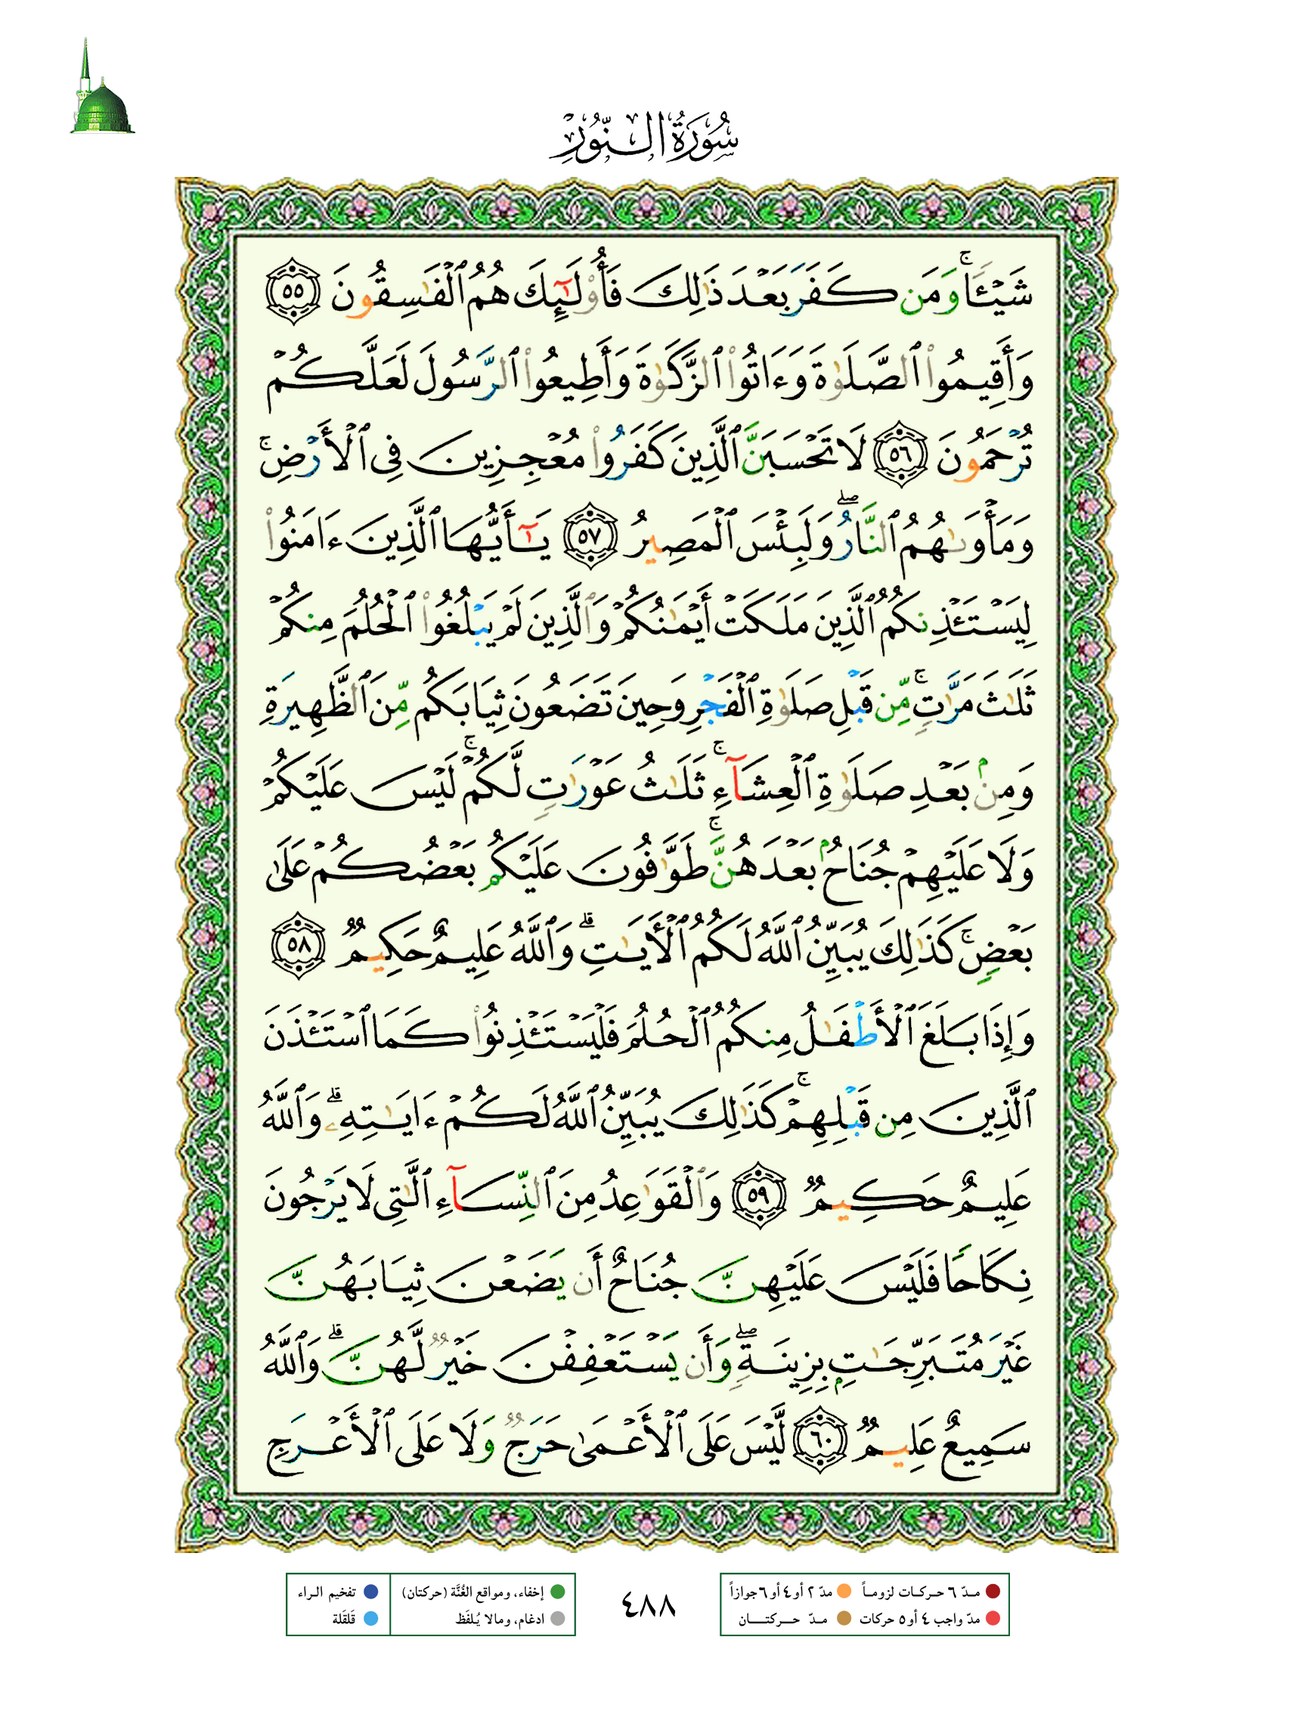 سُورَةُ النُّورِ
شَيْـًٔا ۚ وَمَن كَفَرَ بَعْدَ ذَٰلِكَ فَأُو۟لَـٰٓئِكَ هُمُ ٱلْفَـٰسِقُونَ ٥٥
وَأَقِيمُوا۟ ٱلصَّلَوٰةَ وَءَاتُوا۟ ٱلزَّكَوٰةَ وَأَطِيعُوا۟ ٱلرَّسُولَ لَعَلَّكُمْ
تُرْحَمُونَ ٥٦ لَا تَحْسَبَنَّ ٱلَّذِينَ كَفَرُوا۟ مُعْجِزِينَ فِى ٱلْأَرْضِ ۚ
وَمَأْوَىٰهُمُ ٱلنَّارُ ۖ وَلَبِئْسَ ٱلْمَصِيرُ ٥٧ يَـٰٓأَيُّهَا ٱلَّذِينَ ءَامَنُوا۟
لِيَسْتَـْٔذِنكُمُ ٱلَّذِينَ مَلَكَتْ أَيْمَـٰنُكُمْ وَٱلَّذِينَ لَمْ يَبْلُغُوا۟ ٱلْحُلُمَ مِنكُمْ
ثَلَـٰثَ مَرَّٰتٍ ۚ مِّن قَبْلِ صَلَوٰةِ ٱلْفَجْرِ وَحِينَ تَضَعُونَ ثِيَابَكُم مِّنَ ٱلظَّهِيرَةِ
وَمِنۢ بَعْدِ صَلَوٰةِ ٱلْعِشَآءِ ۚ ثَلَـٰثُ عَوْرَٰتٍ لَّكُمْ ۚ لَيْسَ عَلَيْكُمْ
وَلَا عَلَيْهِمْ جُنَاحٌۢ بَعْدَهُنَّ ۚ طَوَّٰفُونَ عَلَيْكُم بَعْضُكُمْ عَلَىٰ
بَعْضٍ ۚ كَذَٰلِكَ يُبَيِّنُ ٱللَّهُ لَكُمُ ٱلْـَٔايَـٰتِ ۗ وَٱللَّهُ عَلِيمٌ حَكِيمٌ ٥٨
وَإِذَا بَلَغَ ٱلْأَطْفَـٰلُ مِنكُمُ ٱلْحُلُمَ فَلْيَسْتَـْٔذِنُوا۟ كَمَا ٱسْتَـْٔذَنَ
ٱلَّذِينَ مِن قَبْلِهِمْ ۚ كَذَٰلِكَ يُبَيِّنُ ٱللَّهُ لَكُمْ ءَايَـٰتِهِۦ ۗ وَٱللَّهُ
عَلِيمٌ حَكِيمٌ ٥٩ وَٱلْقَوَٰعِدُ مِنَ ٱلنِّسَآءِ ٱلَّـٰتِى لَا يَرْجُونَ
نِكَاحًا فَلَيْسَ عَلَيْهِنَّ جُنَاحٌ أَن يَضَعْنَ ثِيَابَهُنَّ
غَيْرَ مُتَبَرِّجَـٰتٍۭ بِزِينَةٍ ۖ وَأَن يَسْتَعْفِفْنَ خَيْرٌ لَّهُنَّ ۗ وَٱللَّهُ
سَمِيعٌ عَلِيمٌ ٦٠ لَّيْسَ عَلَى ٱلْأَعْمَىٰ حَرَجٌ وَلَا عَلَى ٱلْأَعْرَجِ
مدّ ٦ حركات لزوماً مدّ ٢ أو ٤ أو ٦ جوازاً
مدّ واجب ٤ أو ٥ حركات مدّ حركتان
٤٨٨
إخفاء، ومواقع الغُنَّة (حركتان) تفخيم الراء
ادغام، ومالا يُلفَظ قلقلة